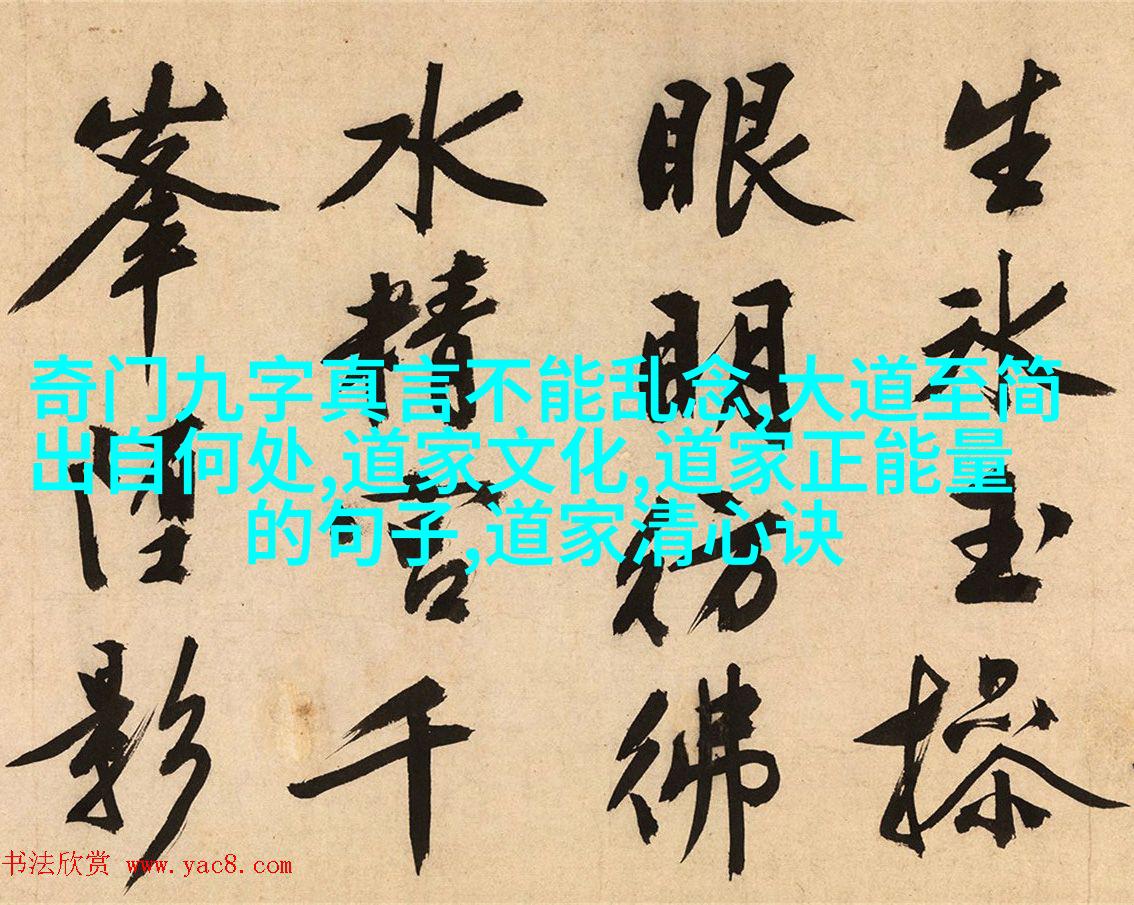 生冰玉操
眼明彷彿
水精宮千
峯影
奇门九字真言不能乱念,大道至简
出自何处,道家文化,道家正能量
的句子,道家清心诀
书法欣赏 www.yac8.com